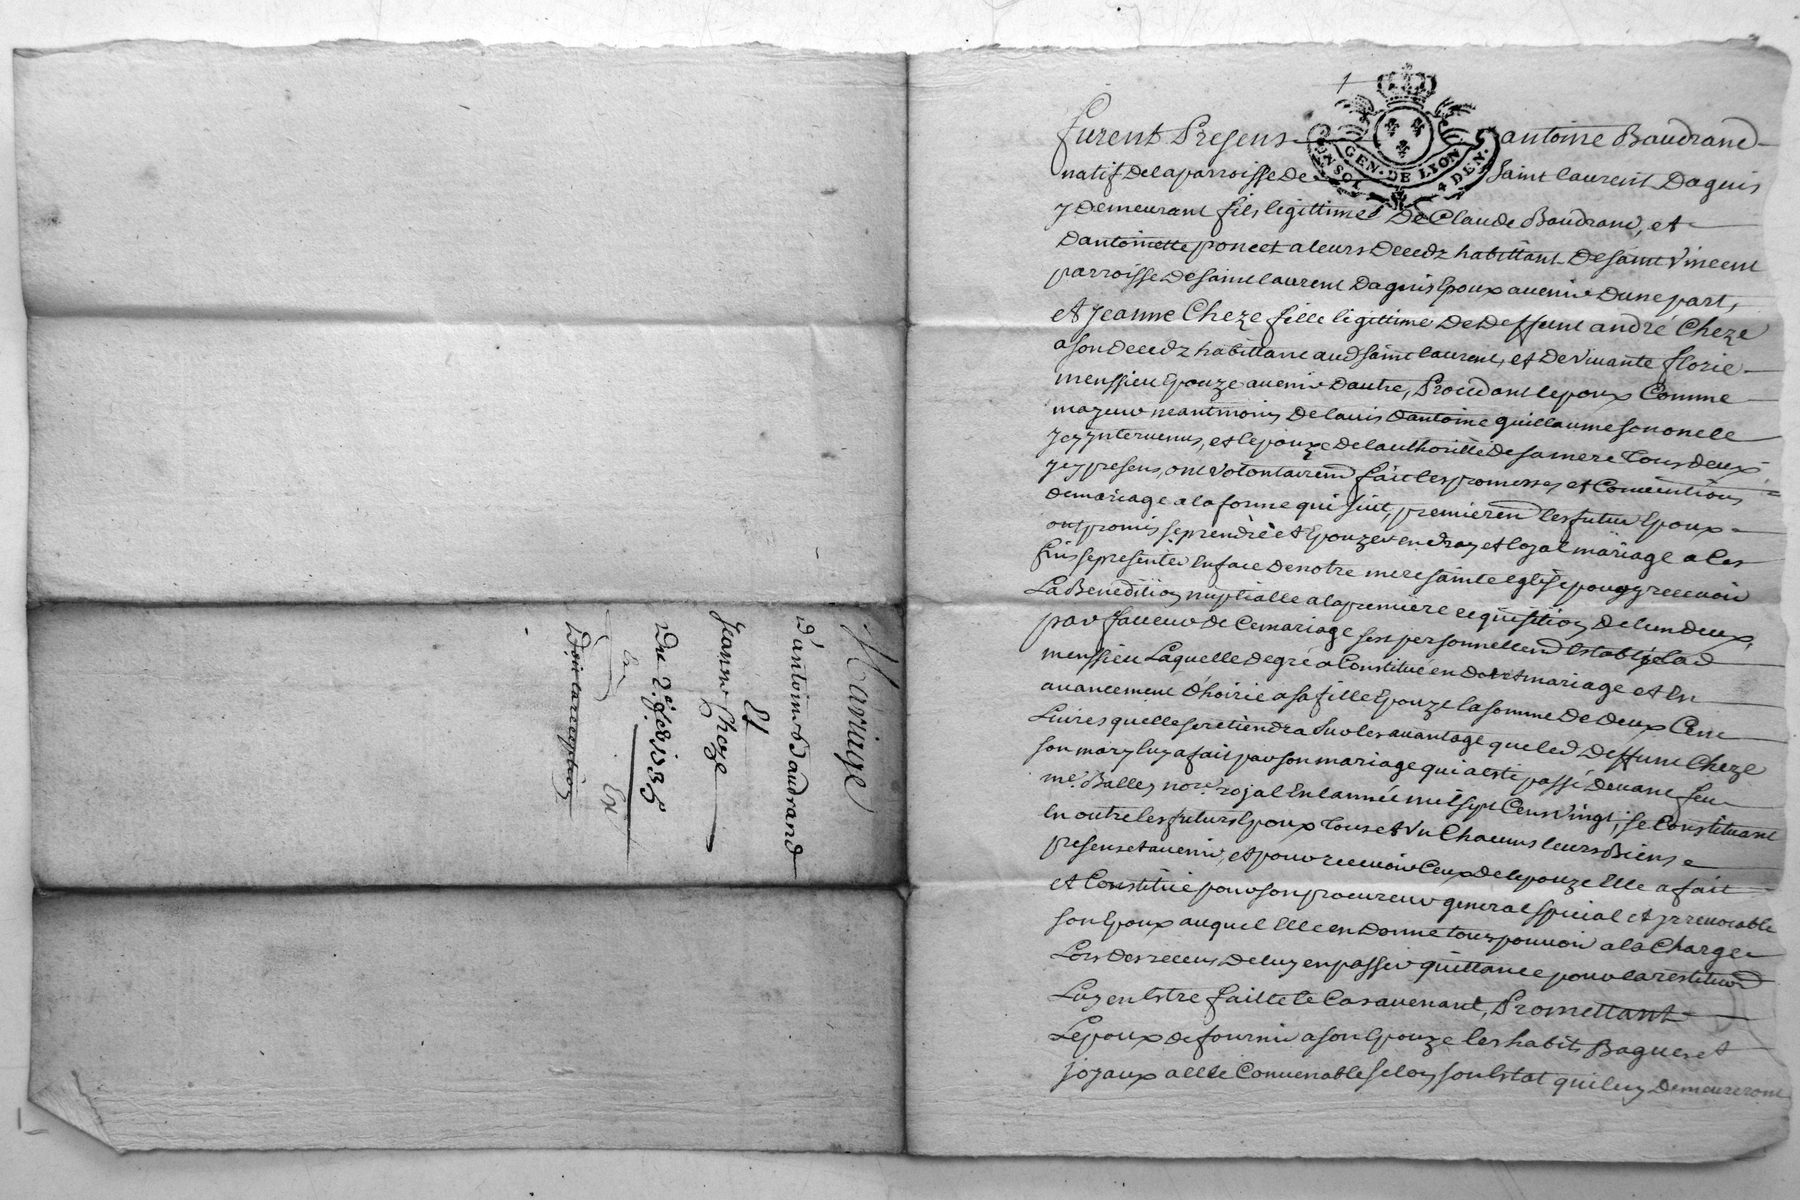 Mariage
D'antoine Baudrand
Et
Jeanne Cheze
Du 2e. feb. 1735
Exp
Doit la reception
1
GEN. DE LYON
UN SOL 4 DEN.
furent Presens antoine Baudrand
natif de la parroisse de Saint laurent Dagnis
y demeurant fils legittime de Claude Baudrand, et
dantoinette poncet a leurs decedz habittant de saint Vincent
parroisse de saint laurent Dagnis Epoux avenir dune part,
et Jeanne Cheze fille legittime de deffunt andré Cheze
a son decedz habittant aud saint laurent, et de vivante florie
menssieu Epouze avenir dautre, Procedant lepoux Comme
mayeur neantmoins de lavis dantoine guillaume son oncle
icy yntervenus, et lepouze de lauthoritté de sa mere tous deux
icy presens, ont volontairemt fait les promesses et Conventions
de mariage a la forme qui suit, premieremt les futur Epoux
ont promis se prendre et Epouzer en vray et loyal mariage a ces
fins se presenter En face de notre mere sainte eglise pour y recevoir
La Benedition nuptialle a la premiere requisition de lun deux,
par faveur de Ce mariage sest personnellemt Establye lad
menssieu Laquelle de gré a Constitué en dot et mariage et En
avancement dhoirie a sa fille Epouze la somme de deux Cent
Livres quelle se retiendra sur les avantage que led deffunt Cheze
son mary luy a fait par son mariage qui a esté passé devant feu
me. Balley nore. royal En lannée mil sept Cens vingt, se Constituant
En outre les futurs Epoux tous et Un Chacuns leurs Biens
presens et avenir, et pour recevoir Ceux de lepouze Elle a fait
et Constitué pour son procureur general special et yrrevocable
son Epoux auquel Elle en donne tous pouvoir a la Charge
Lors des receus de luy en passer quittance pour la restitution
Luy en Estre faitte le Cas avenant, Promettant
Lepoux de fournir a son Epouze les habits Bagues et
joyaux a elle Convenable selon son Estat qui luy demeureront